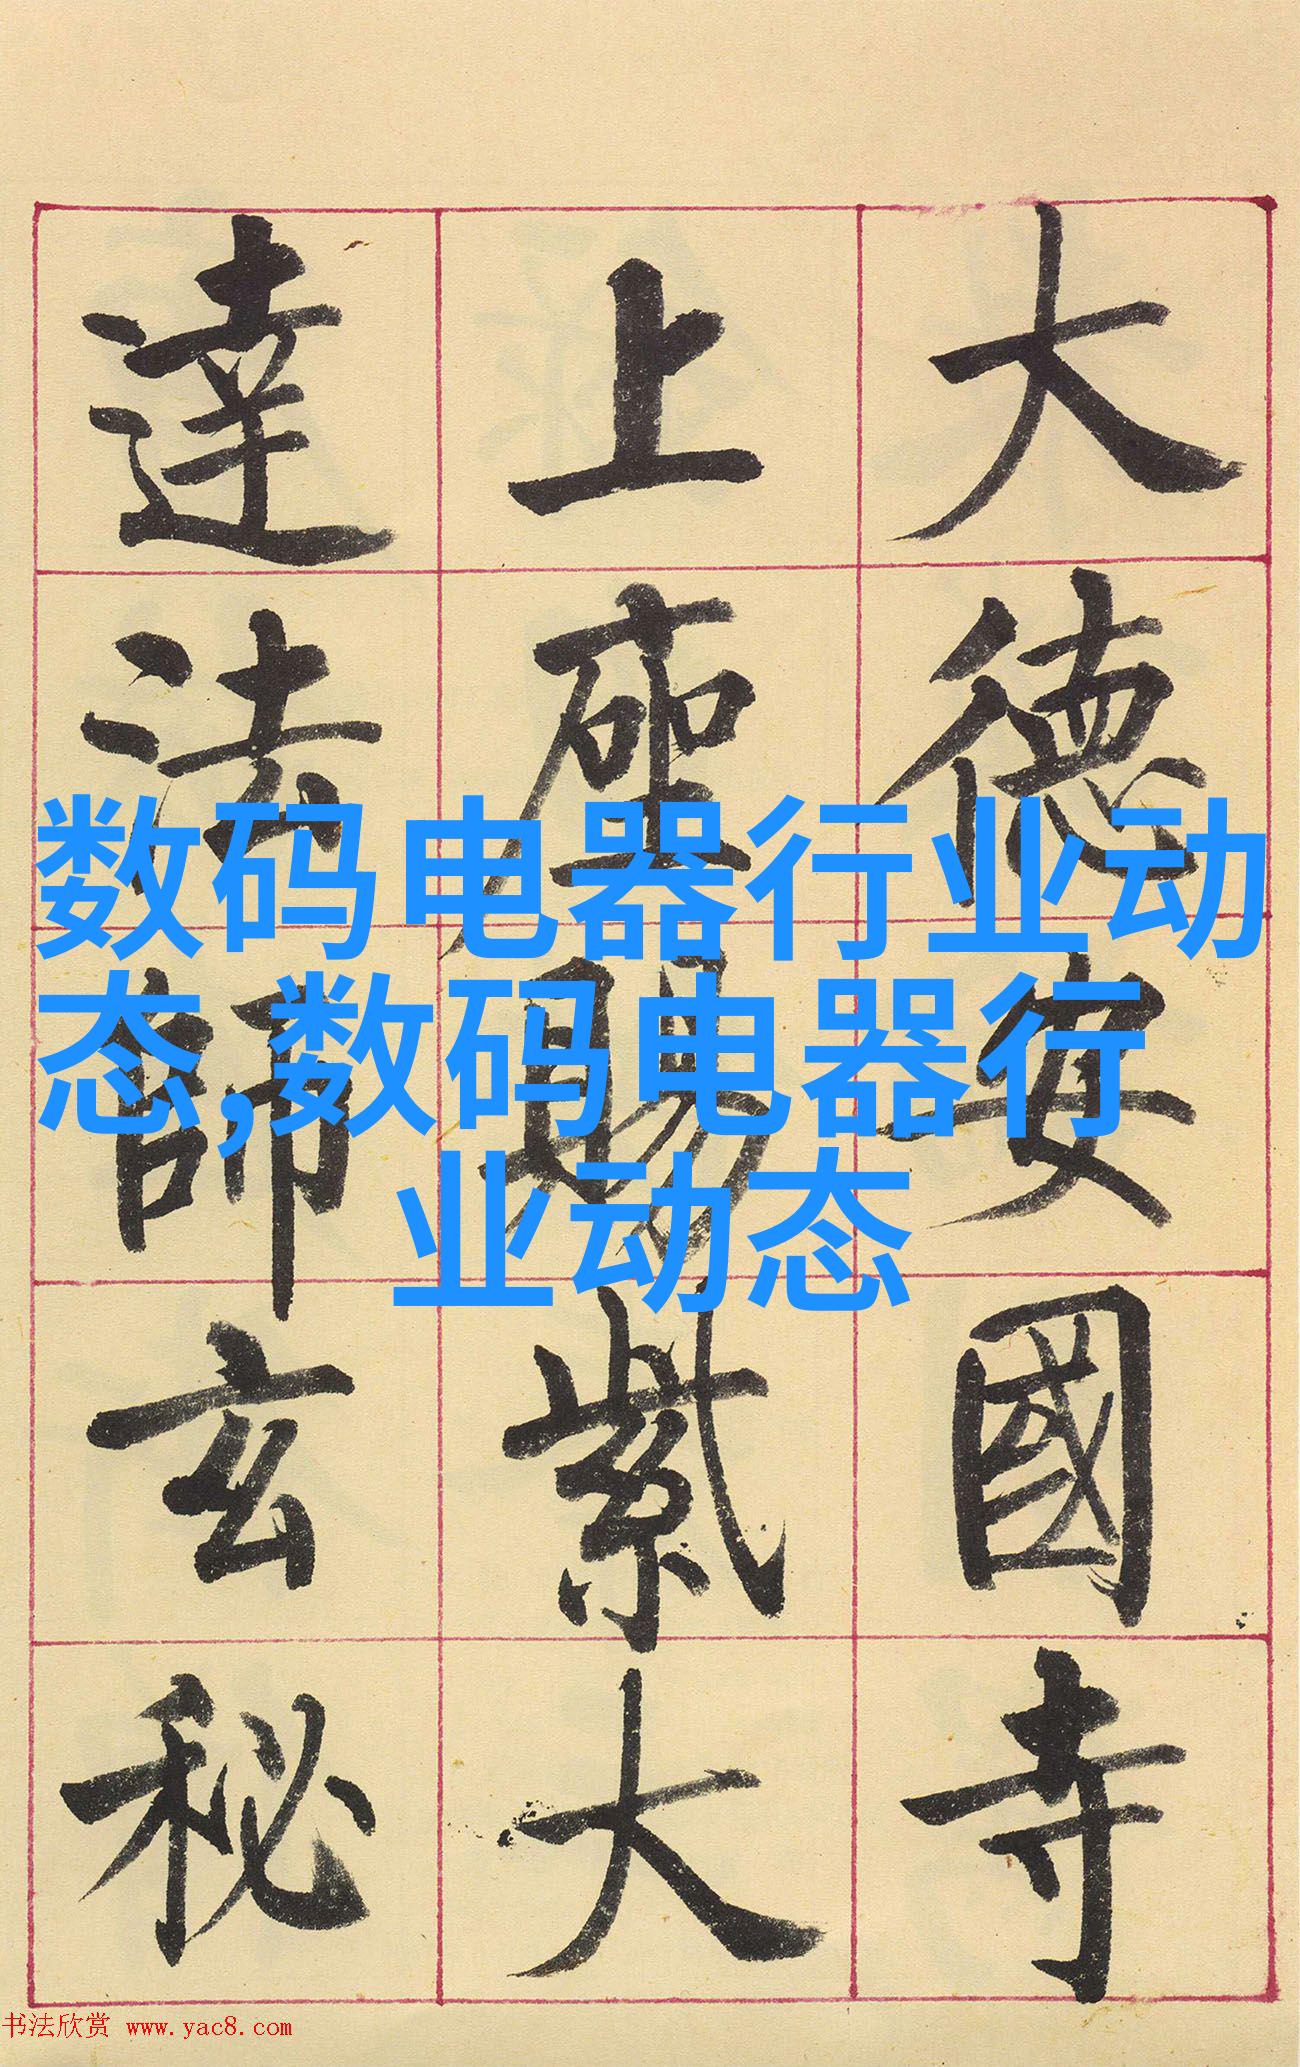 大德安國寺
上座賜紫大
達法師玄秘
数码电器行业动
态,数码电器行
业动态
书法欣赏 www.yac8.com